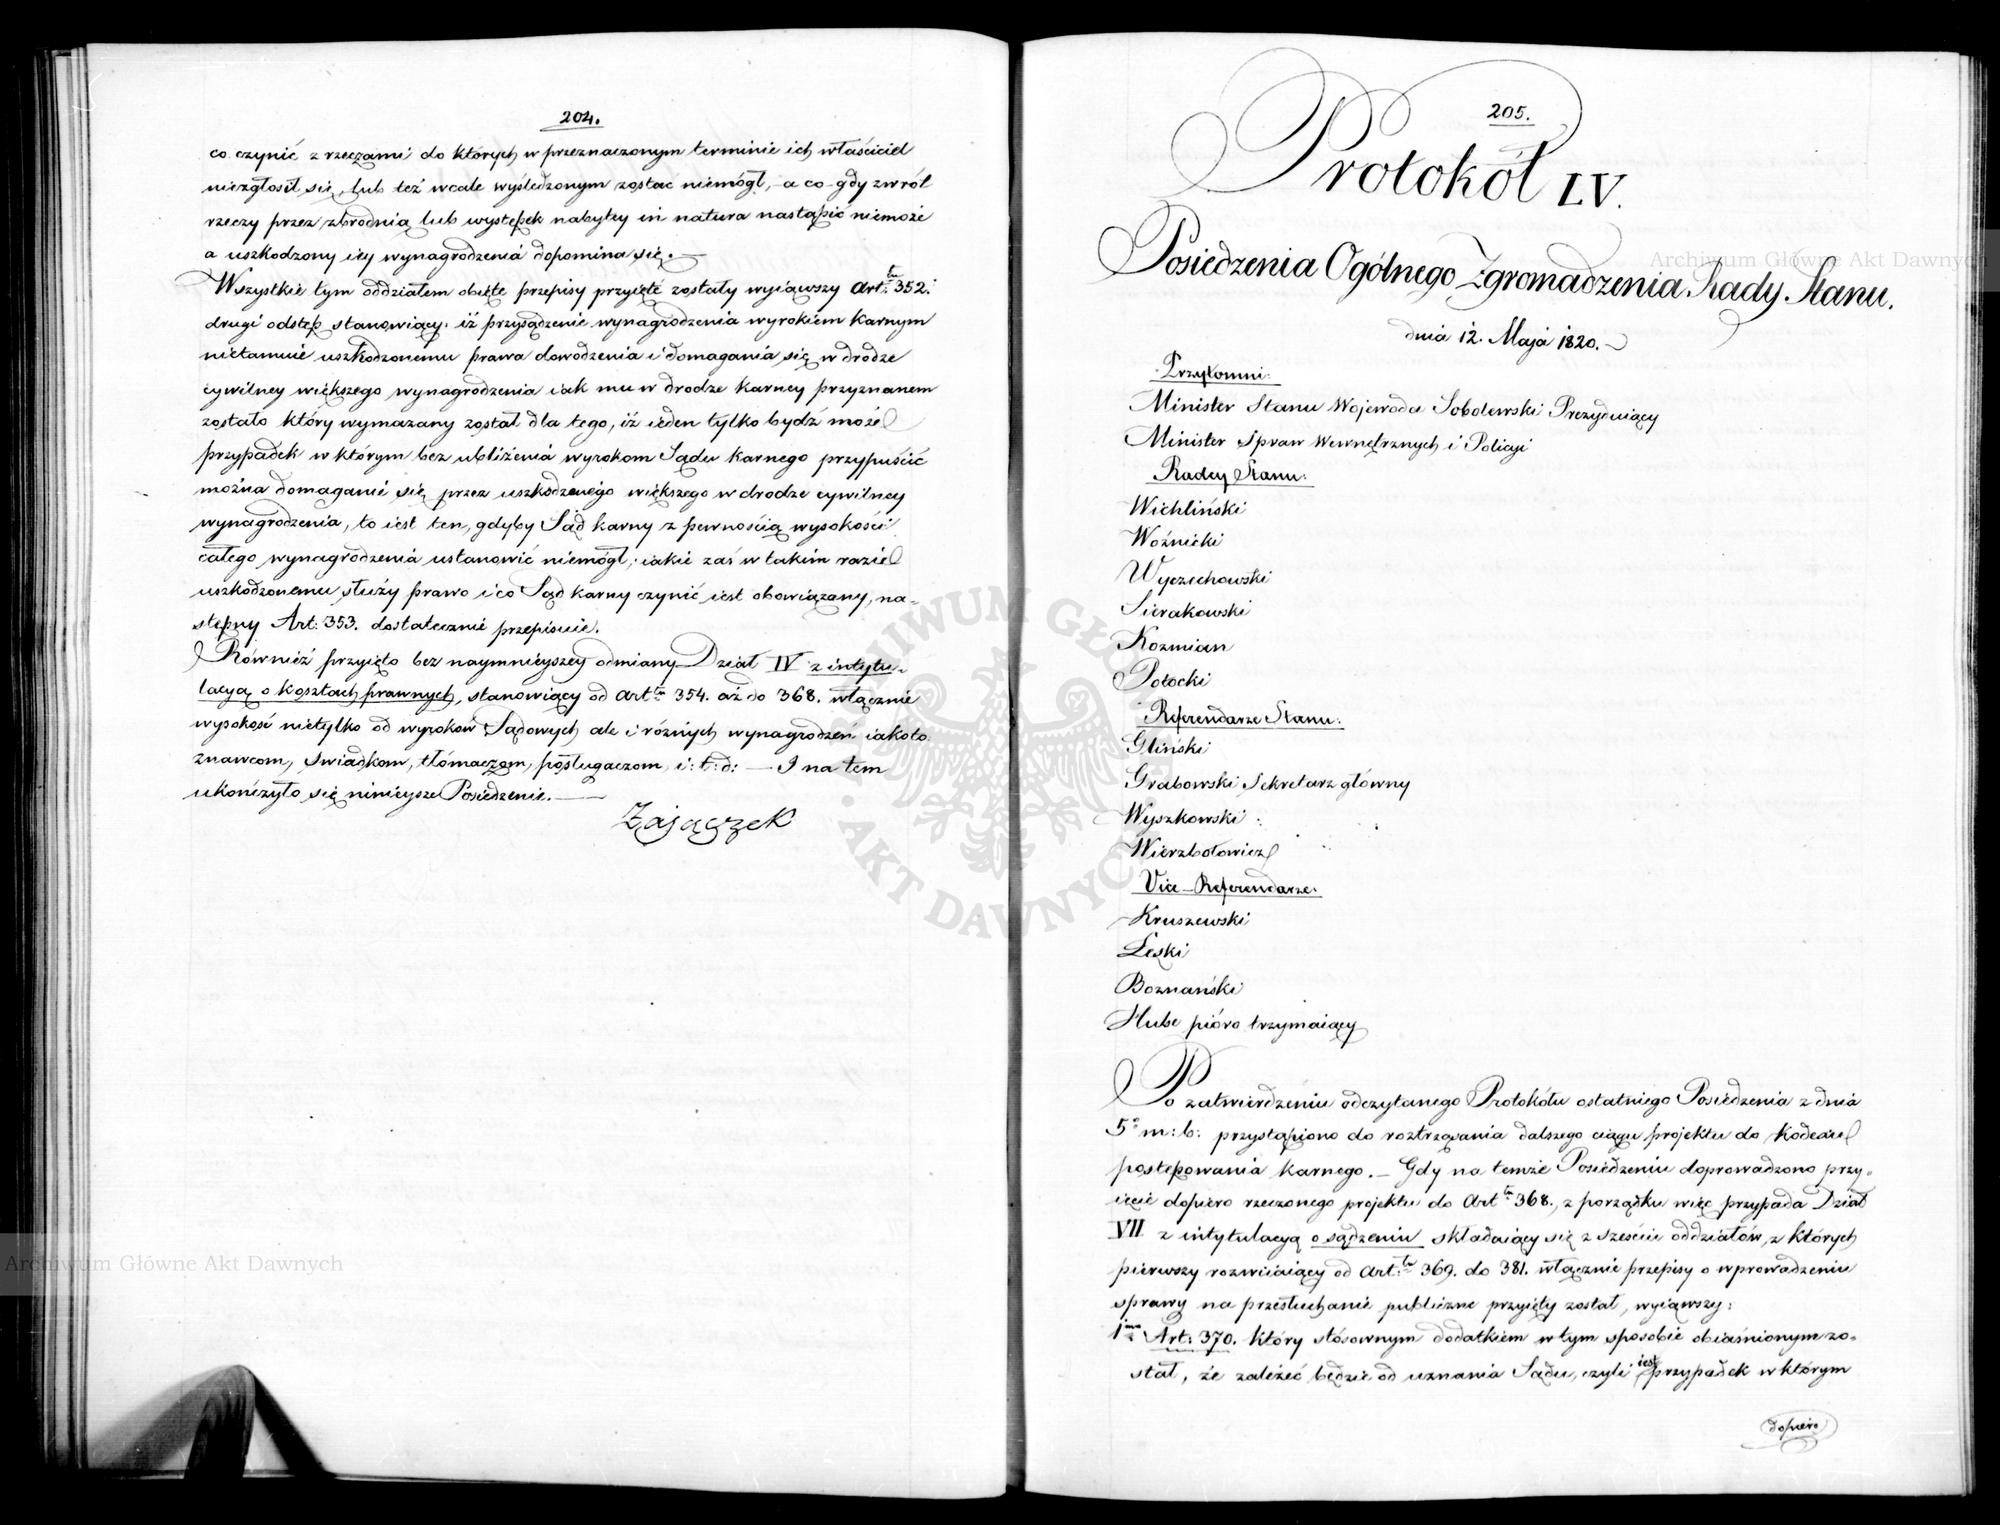 204.
co czynić z rzeczami do których w przeznaczonym terminie ich właściciel
niezgłosił się, lub też wcale wyśledzonym zostać niemógł, a co gdy zwrót
rzeczy przez zbrodnią lub występek nabytey in natura nastąpić niemoże
a uszkodzony iey wynagrodzenia dopomina się.
Wszystkie tym oddziałem obięte przepisy przyięte zostały wyiąwszy Art: 352.
drugi odstęp stanowiący: iż przysądzenie wynagrodzenia wyrokiem karnym
nietamuie uszkodzonemu prawa dowodzenia i domagania się w drodze
cywilney większego wynagrodzenia iak mu w drodze karney przyznanem
zostało który wymazany został dla tego, iż ieden tylko bydź może
przypadek w którym bez ubliżenia wyrokom Sądu karnego przypuścić
można domaganie się przez uszkodzonego większego w drodze cywilney
wynagrodzenia, to iest ten, gdyby Sąd karny z pewnością wysokości
całego wynagrodzenia ustanowić niemógł; iakie zaś w takim razie
uszkodzonemu służy prawo i co Sąd karny czynić iest obowiązany, na-
stępny Art: 353. dostatecznie przepisuie.
Również przyięto bez naymnieyszey odmiany Dział IV z intytu-
lacyą o kosztach prawnych, stanowiący od Art^łu 354. aż do 368. włącznie
wysokość nietylko od wyroków Sądowych ale i różnych wynagrodzeń iakoto
znawcom, świadkom, tłómaczom, posługaczom, i: t: d: — I na tem
ukończyło się ninieysze Posiedzenie. —
Zajączek
205.
Protokół LV.
Posiedzenia Ogólnego Zgromadzenia Rady Stanu.
dnia 12. Maja 1820.
Przytomni:
Minister Stanu Wojewoda Sobolewski Prezyduiący
Minister Spraw Wewnętrznych i Policyi
Radcy Stanu:
Wichliński
Woźnicki
Wyczechowski
Sierakowski
Kozmian
Potocki
Referendarze Stanu:
Gliński
Grabowski Sekretarz główny
Wyszkowski
Wierzbołowicz
Vice-Referendarze:
Kruszewski
Łęski
Boznański
Hube pióro trzymaiący
Po zatwierdzeniu odczytanego Protokółu ostatniego Posiedzenia z dnia
5° m: b: przystąpiono do roztrząsania dalszego ciągu projektu do Kodexu
postępowania karnego. — Gdy na temże Posiedzeniu doprowadzono przy-
ięcie dopiero rzeczonego projektu do Art^łu 368., z porządku więc przypada Dział
VII z intytulacyą o sądzeniu składaiący się z sześciu oddziałów, z których
pierwszy rozwiiaiący od Art:^łu 369. do 381. włącznie przepisy o wprowadzeniu
sprawy na przesłuchanie publiczne przyięty został, wyiąwszy:
1^mo Art: 370. który stósownym dodatkiem w tym sposobie obiaśnionym zo-
stał, że zależeć będzie od uznania Sądu, czyli iest przypadek w którym
dopiero
Archiwum Główne Akt Dawnych
Archiwum Główne Akt Dawnych
ARCHIWUM GŁÓWNE AKT DAWNYCH